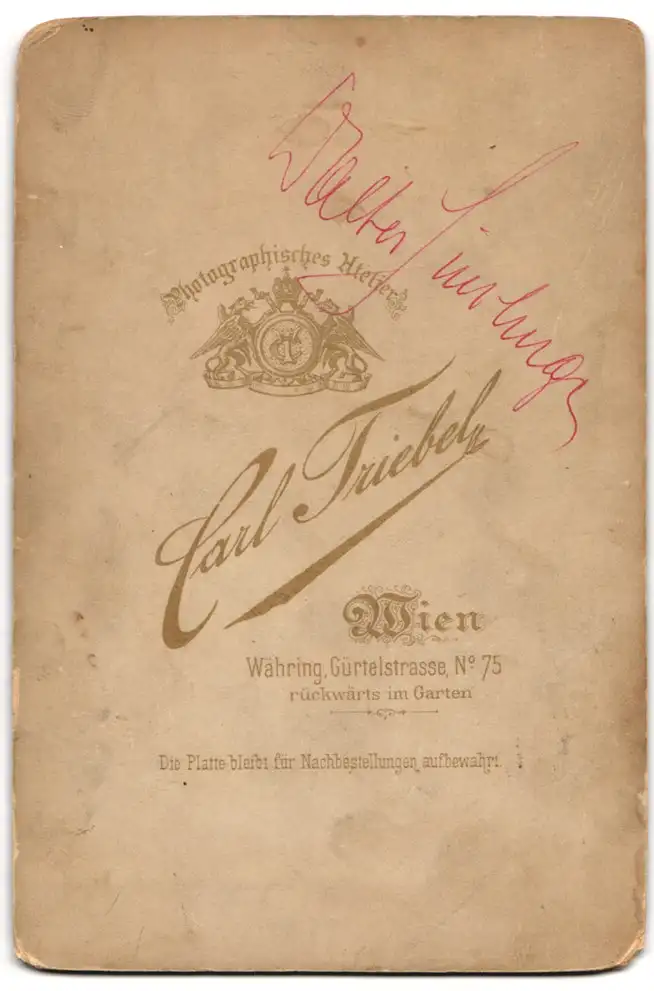 Walter
Photographisches Atelier
CT
Carl Triebel
Wien
Währing, Gürtelstrasse, Nº 75
rückwärts im Garten
Die Platte bleibt für Nachbestellungen aufbewahrt.